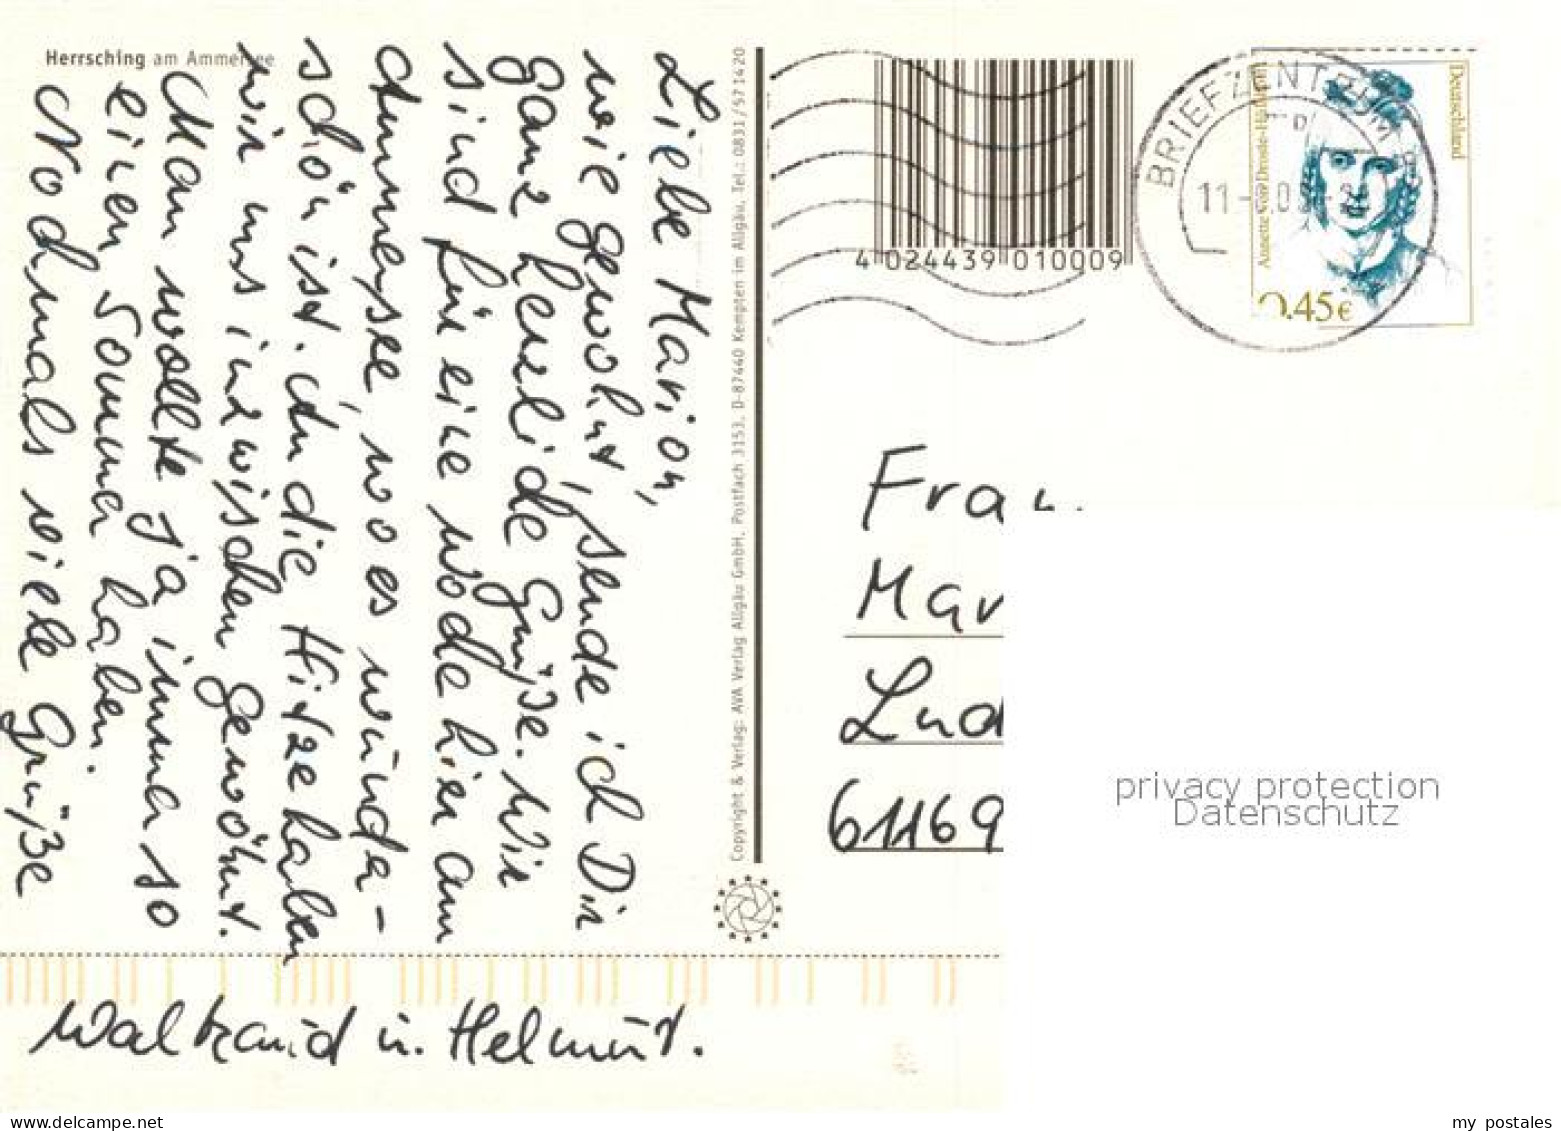 Herrsching am Ammersee
Liebe Marion,
wie gewohnt, sende ich Dir
ganz herzliche Grüße. Wir
sind für eine Woche hier am
Ammersee, wo es wunder-
schön ist. An die Hitze haben
wir uns inzwischen gewöhnt.
Man wollte ja immer so
einen Sommer haben.
Nochmals viele Grüße
Waltraud u. Helmut.
Copyright & Verlag: AVA Verlag Allgäu GmbH, Postfach 3153, D-87440 Kempten im Allgäu, Tel.: 0831/571420
4 024439 010009
BRIEFZENTRUM
11.
Deutschland
Annette von Droste-Hülshoff
0.45€
Frau
Mar
Lud
61169
privacy protection
Datenschutz
my postales